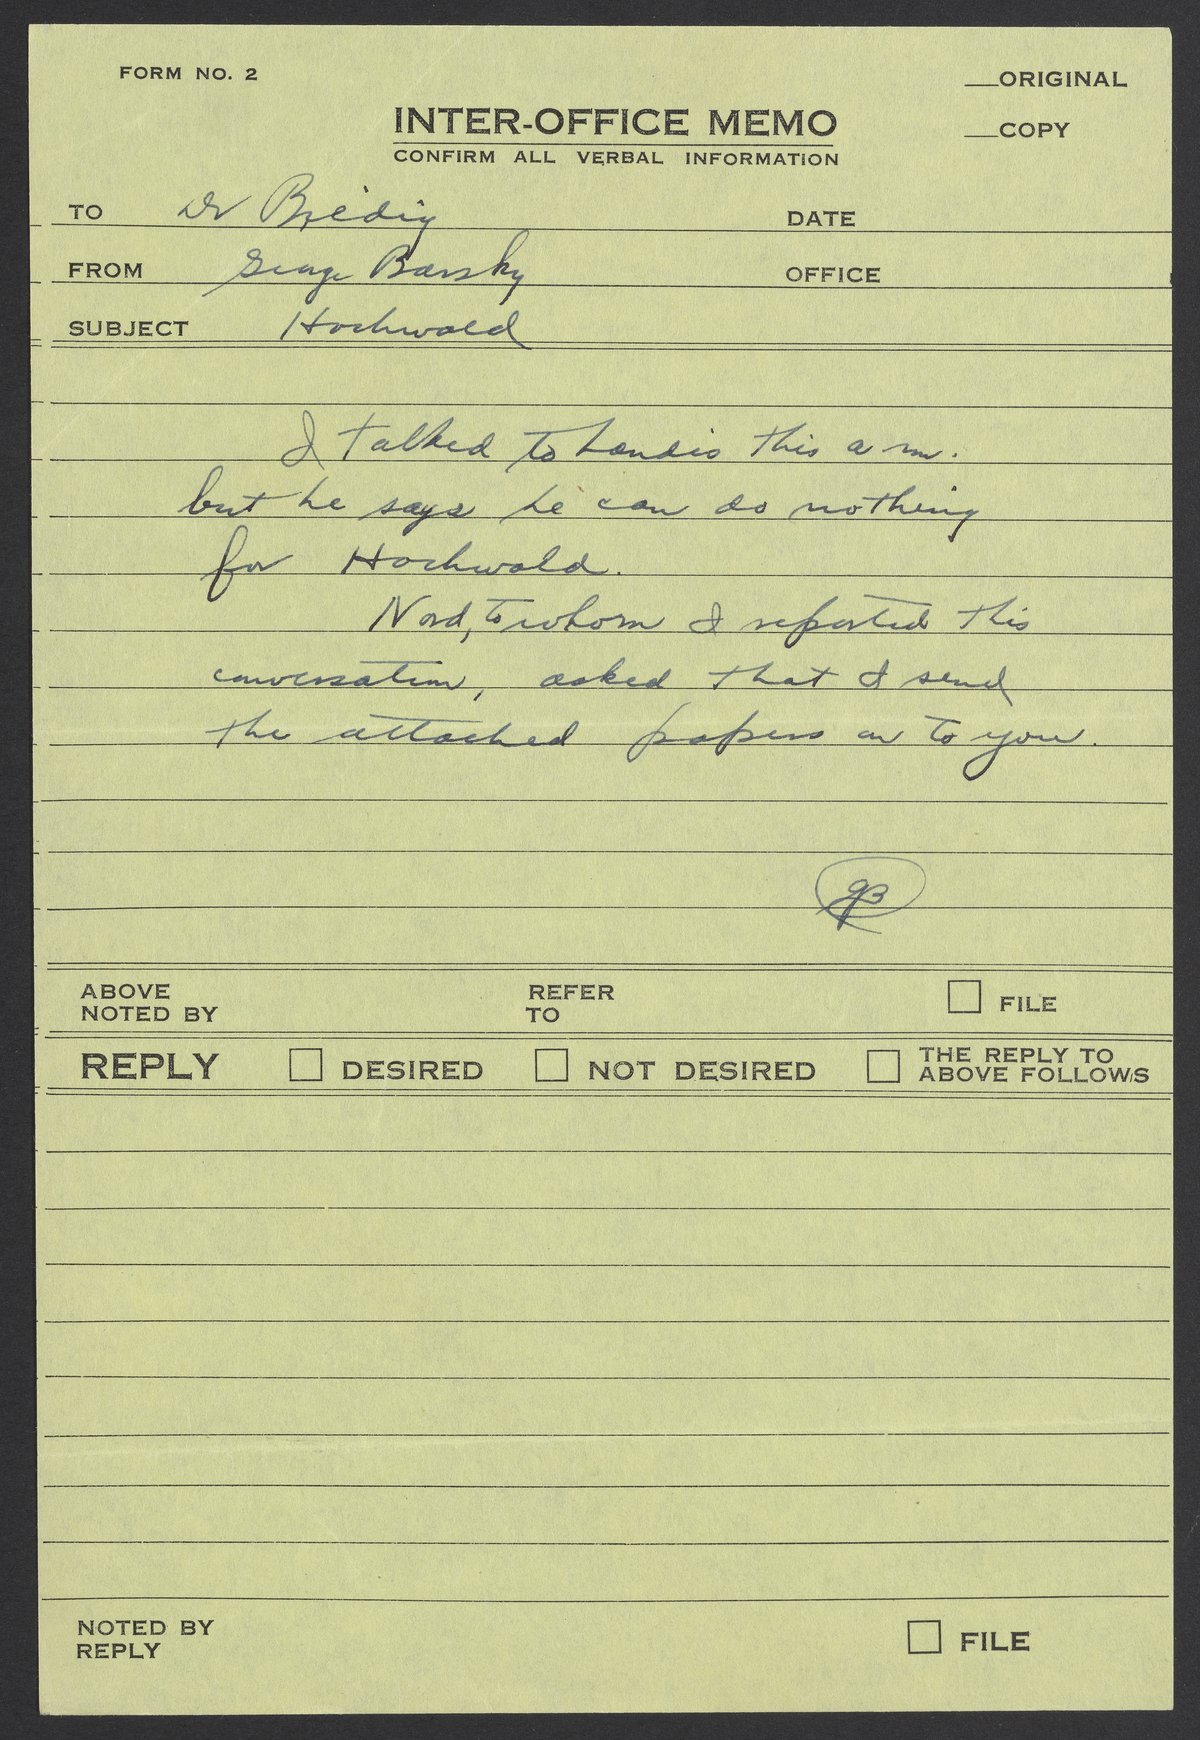 FORM NO. 2
__ORIGINAL
INTER-OFFICE MEMO
__COPY
CONFIRM ALL VERBAL INFORMATION
TO Dr Bredig DATE
FROM George Barsky OFFICE
SUBJECT Hochwald
I talked to Landis this a m.
but he says he can do nothing
for Hochwald.
Nord, to whom I reported this
conversation, asked that I send
the attached papers on to you.
GB
ABOVE NOTED BY REFER TO FILE
REPLY DESIRED NOT DESIRED THE REPLY TO ABOVE FOLLOWS
NOTED BY REPLY FILE